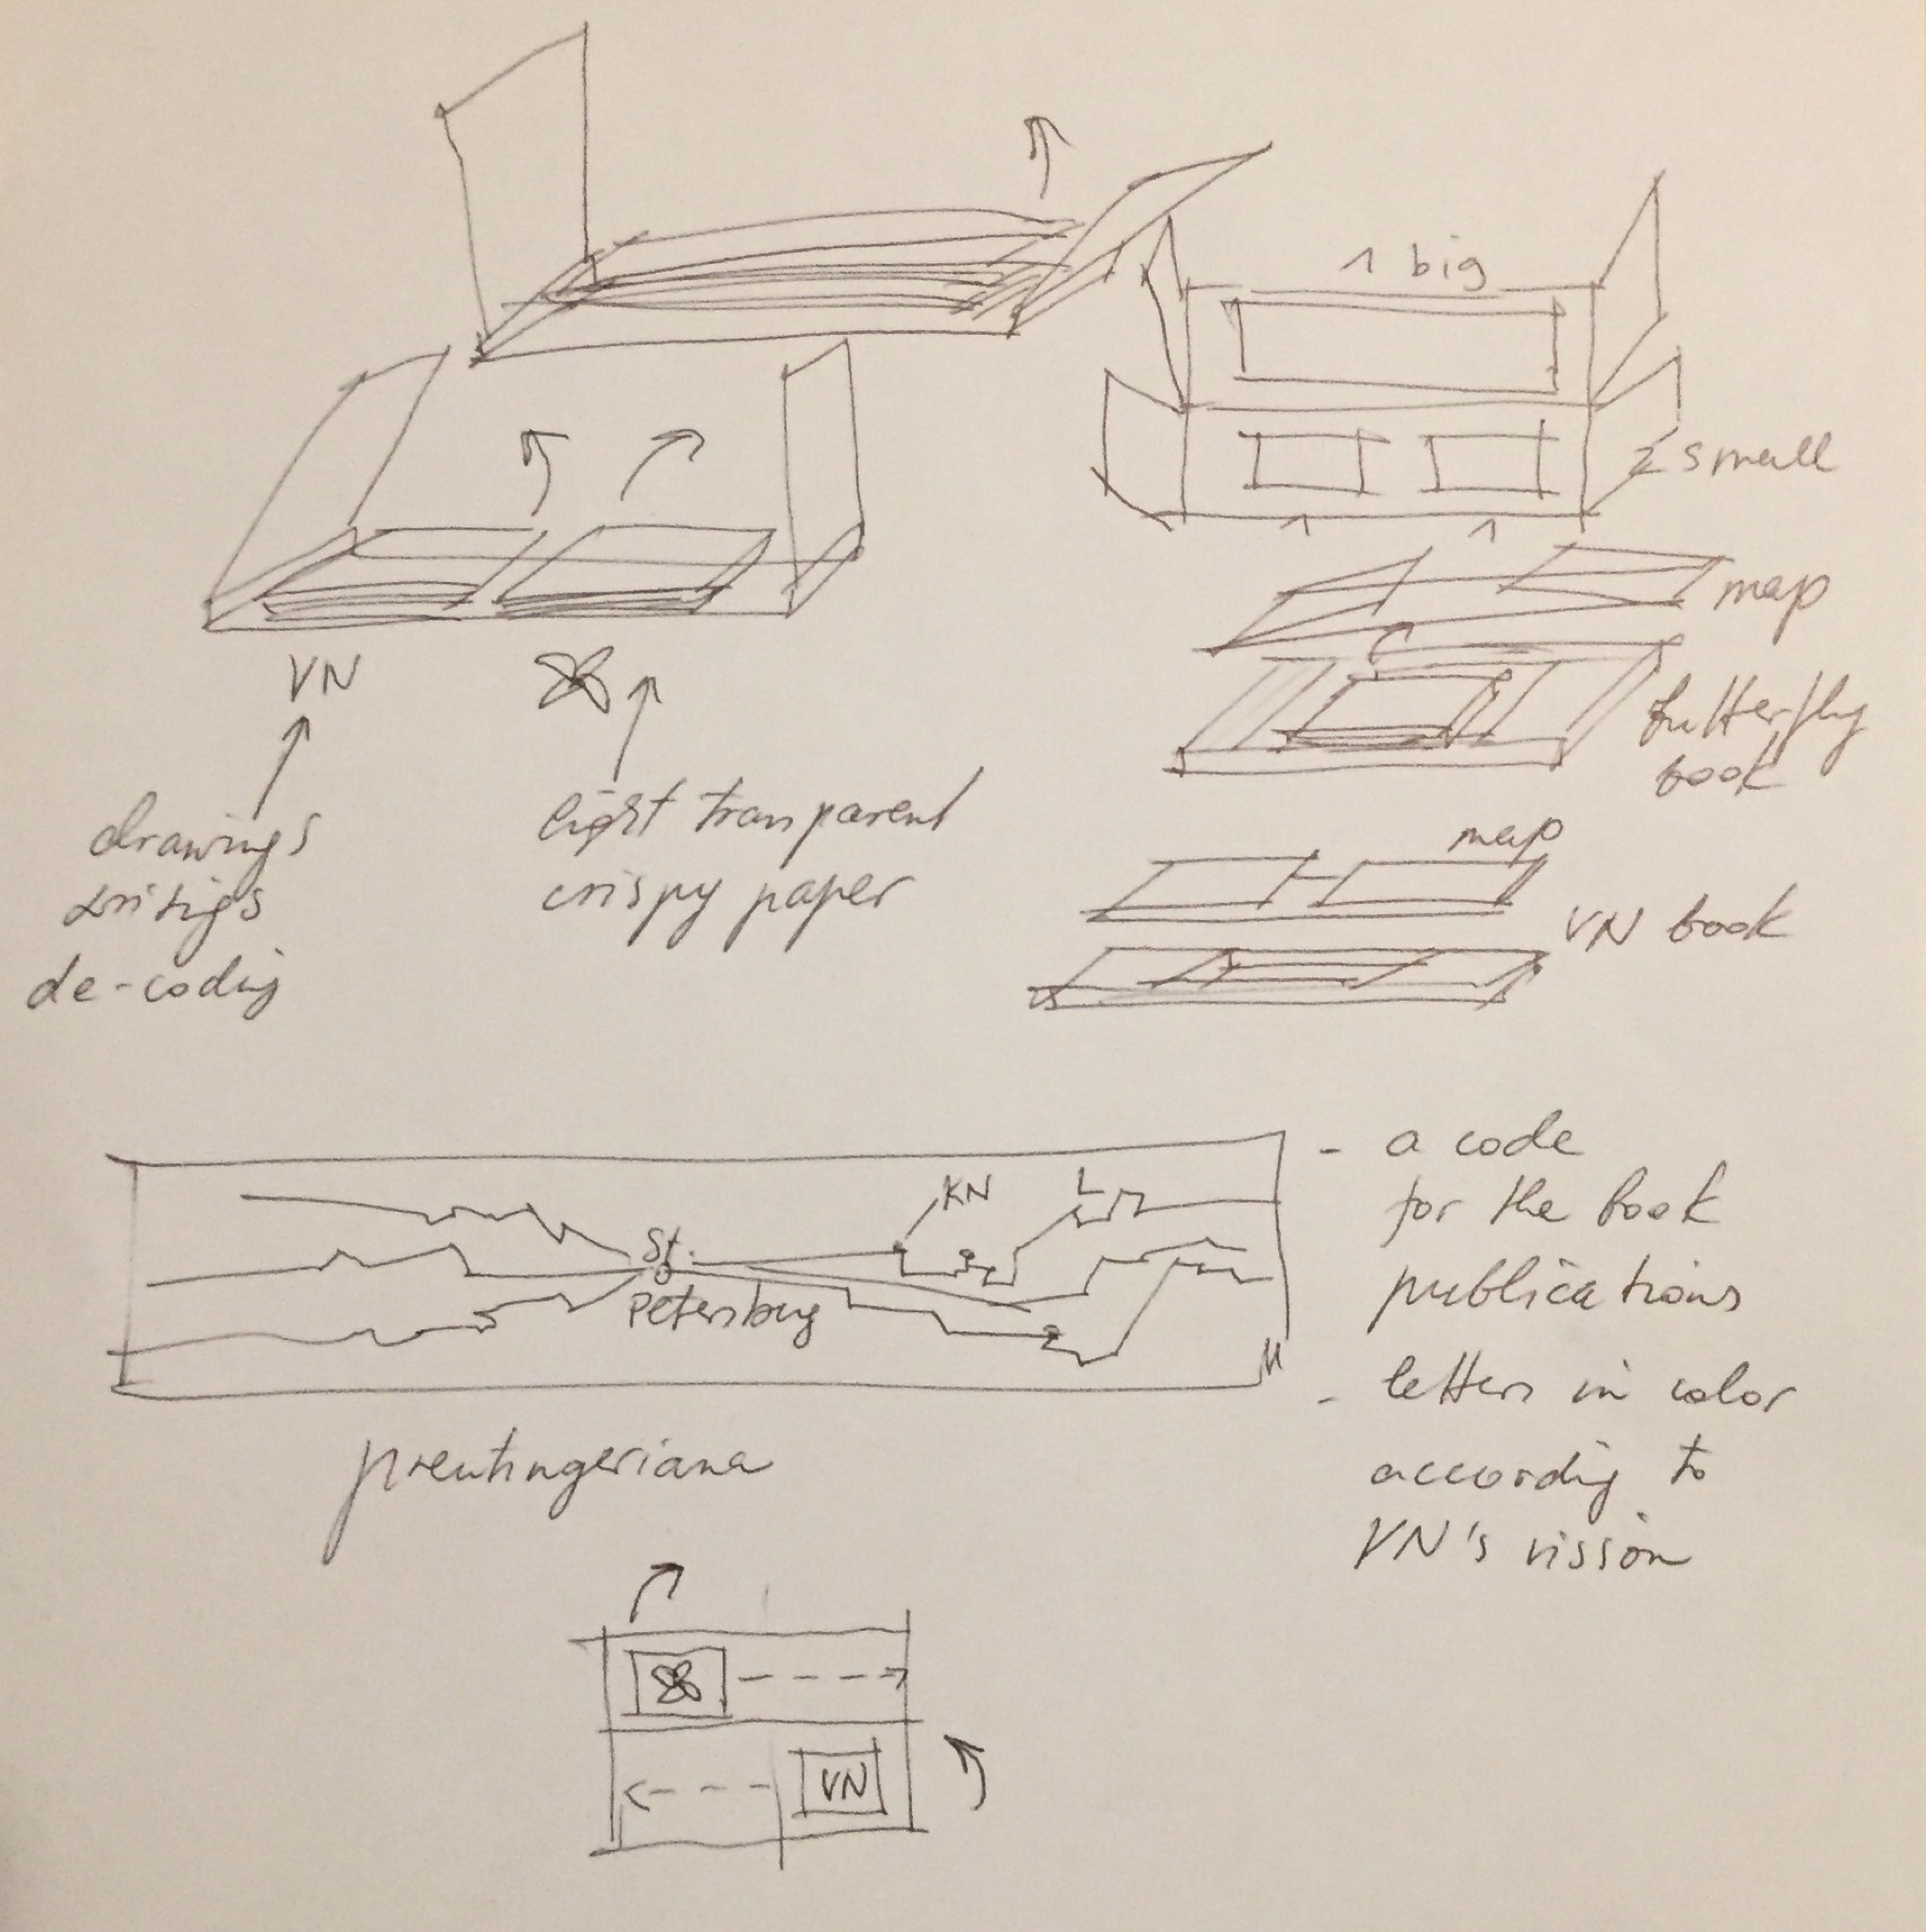 1 big
2 small
1 1
map
butterfly
book
VN
drawings
writigs
de-codig
light transparent
crispy paper
map
VN book
KN
L
St.
Petersbug
- a code
for the book
publications
- letters in color
accordig to
VN's vission
preutingeriana
VN